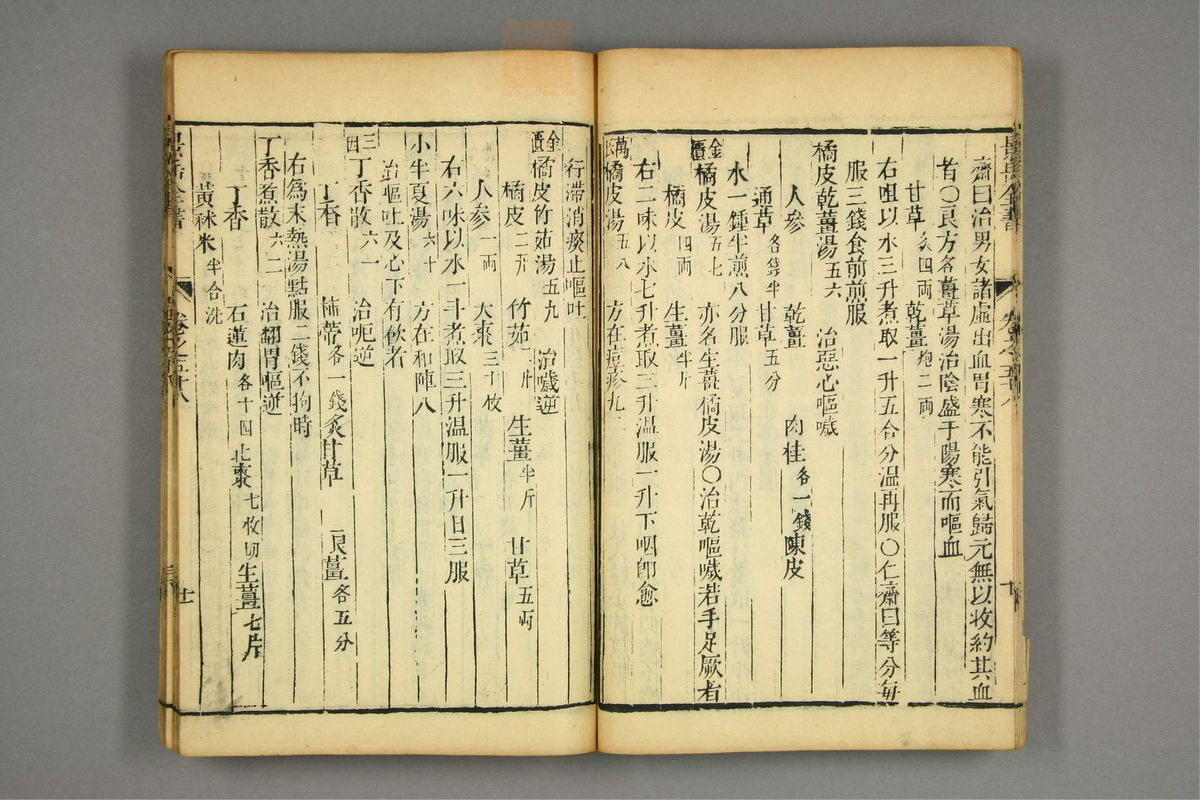 齋曰治男女諸虛出血胃寒不能引氣歸元無以收約其血
者〇良方名薑草湯治陰盛于陽寒而嘔血
甘草炙四兩 乾薑炮二兩
右咀以水三升煮取一升五合分溫再服〇仁齋曰等分每
服三錢食前服
橘皮乾薑湯五六 治惡心嘔噦
人參 乾薑 肉桂各一錢 陳皮
通草各錢半 甘草五分
水一鍾半煎八分服
金匱橘皮湯五七 亦名生薑橘皮湯〇治乾嘔噦若手足厥者
橘皮四兩 生薑半斤
右二味以水七升煮取三升温服一升下咽即愈
萬氏橘皮湯五八 方在痘疹九
行滯消痰止嘔吐
金匱橘皮竹茹湯五九 治噦逆
橘皮二升 竹茹二升 生薑半斤 甘草五兩
人參一兩 大棗三十枚
右六味以水一斗煮取三升温服一升日三服
小半夏湯六十 方在和陣八
治嘔吐及心下有飲者
三因丁香散六一 治呃逆
丁香 柿蒂各一錢 炙甘草 良薑各五分
右為末熱湯點服二錢不拘時
丁香煮散六二 治翻胃嘔逆
丁香 石蓮肉各十四 北棗七枚切 生薑七片
黃秫米半合洗